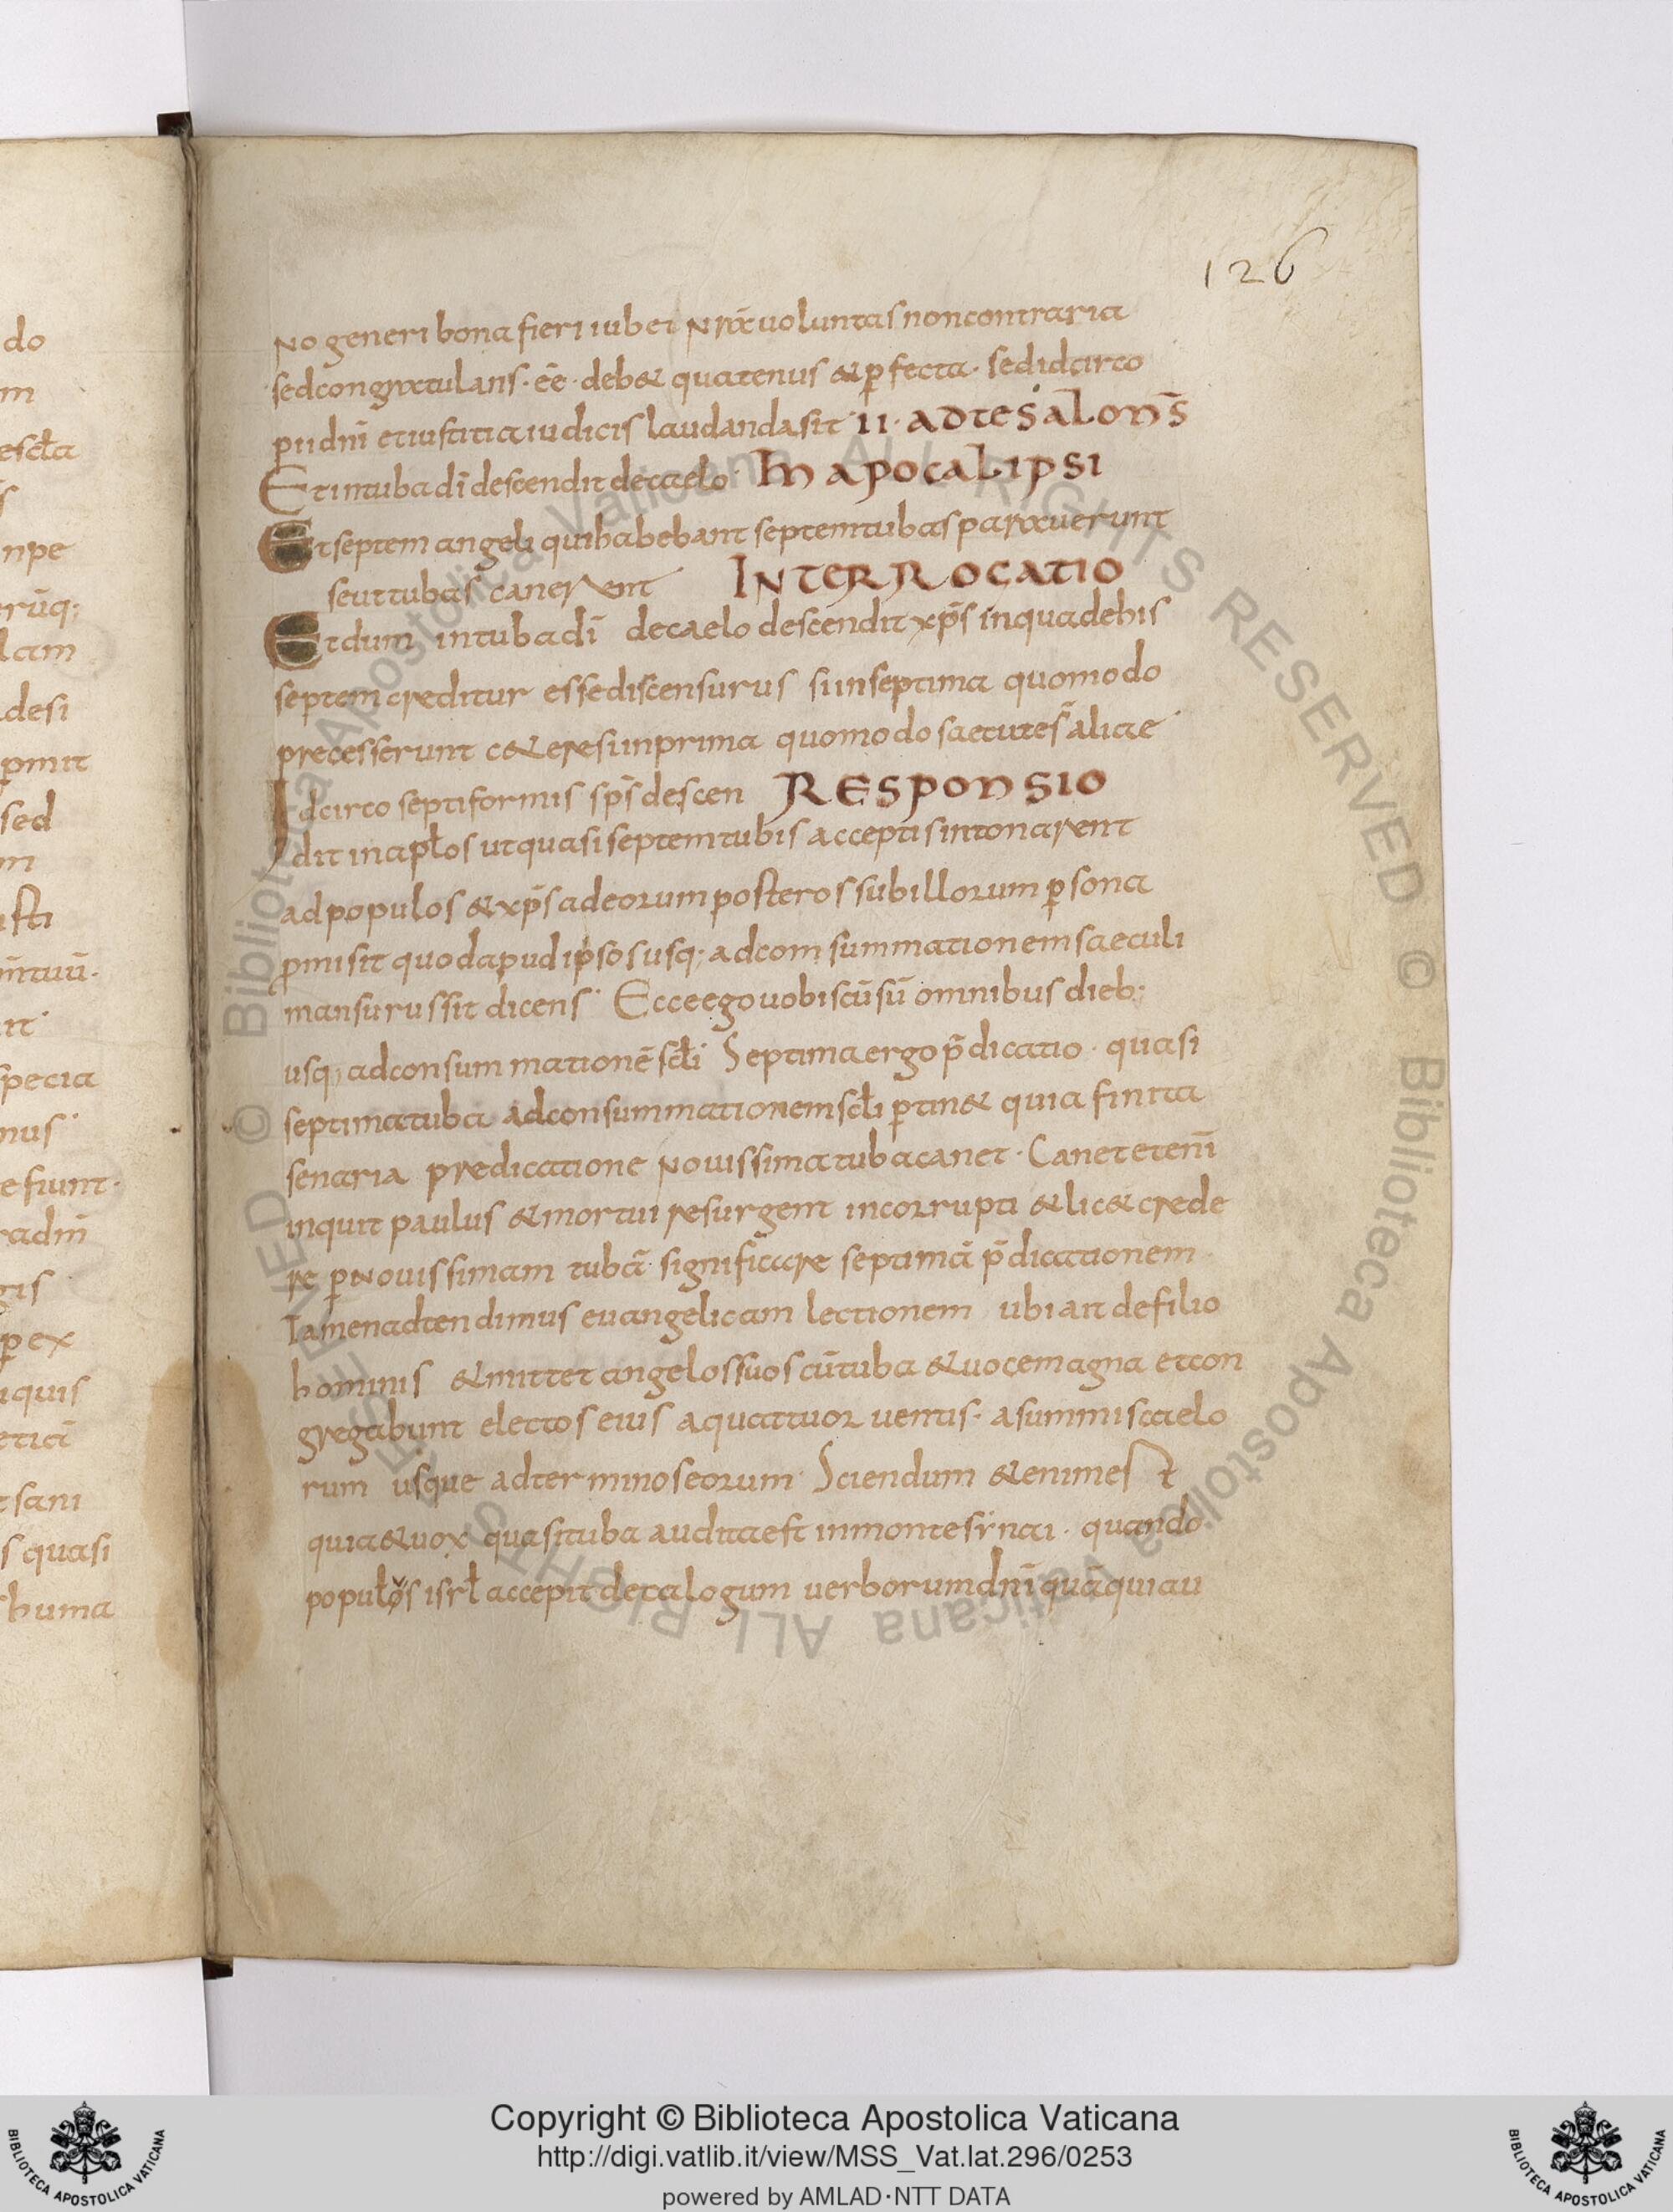 126
no generi bona fieri iubet nr̄a uoluntas non contraria
sed congratulans · eē · deb& quatenus & ꝑfecta · sed idcirco
pii dn̄i et iustitia iudicis laudanda sit · II · AD TESALONS̄
Et in tuba dī descendit de caelo · IN APOCALIPSI
Et septem angeli qui habebant septem tubas parauerunt
se ut tubas canerent INTERROCATIO
Et dum in tuba dī de caelo descendit xp̄s in qua de his
septem creditur esse discensurus si in septima quomodo
precesserunt c&ere si in prima quomodo
Idcirco septiformis sp̄s descen RESPONSIO
dit in apl̄os ut quasi septem tubis accepti sintonarent
ad populos & xp̄s ad eorum posteros sub illorum ꝑsona
ꝓmisit quod apud ipsos usq; ad com summationem saeculi
mansurus sit dicens · Ecce ego uobiscū sū omnibus dieb;
usq; ad consummationē scl̄i · Septima ergo p̄dicatio · quasi
septima tuba ad consummationem scl̄i ꝑtin& quia finita
senaria predicatione nouissima tuba canet · Canet etenī
inquit paulus & mortui resurgent incorrupti & lic& crede
re ꝑ nouissimam tubā significare septimā p̄dicationem ·
Tamen adtendimus euangelicam lectionem ubi ait de filio
hominis & mittet angelos suos cū tuba & uoce magna et con
gregabunt electos eius a quattuor uentis · a summis caelo
rum usque ad terminos eorum · Sciendum & enim est
quia & uox quasi tuba audita est in monte sinai · quando
popul̄os isrl̄ accepit decalogum uerborum dn̄i quā qui au
do
m
escl̄a
s
npe
erūq;
lam
desi
pmit
sed
m
usti
īntuū ·
it ·
specia
nus
e fiunt ·
radm̄
gis
ꝑ ex
iquis
eticā
t sani
s quasi
huma
© Biblioteca Apostolica Vaticana ALL RIGHTS RESERVED © Biblioteca Apostolica Vaticana ALL RIGHTS RESERVED
Copyright © Biblioteca Apostolica Vaticana
http://digi.vatlib.it/view/MSS_Vat.lat.296/0253
powered by AMLAD·NTT DATA
BIBLIOTECA APOSTOLICA VATICANA
BIBLIOTECA APOSTOLICA VATICANA